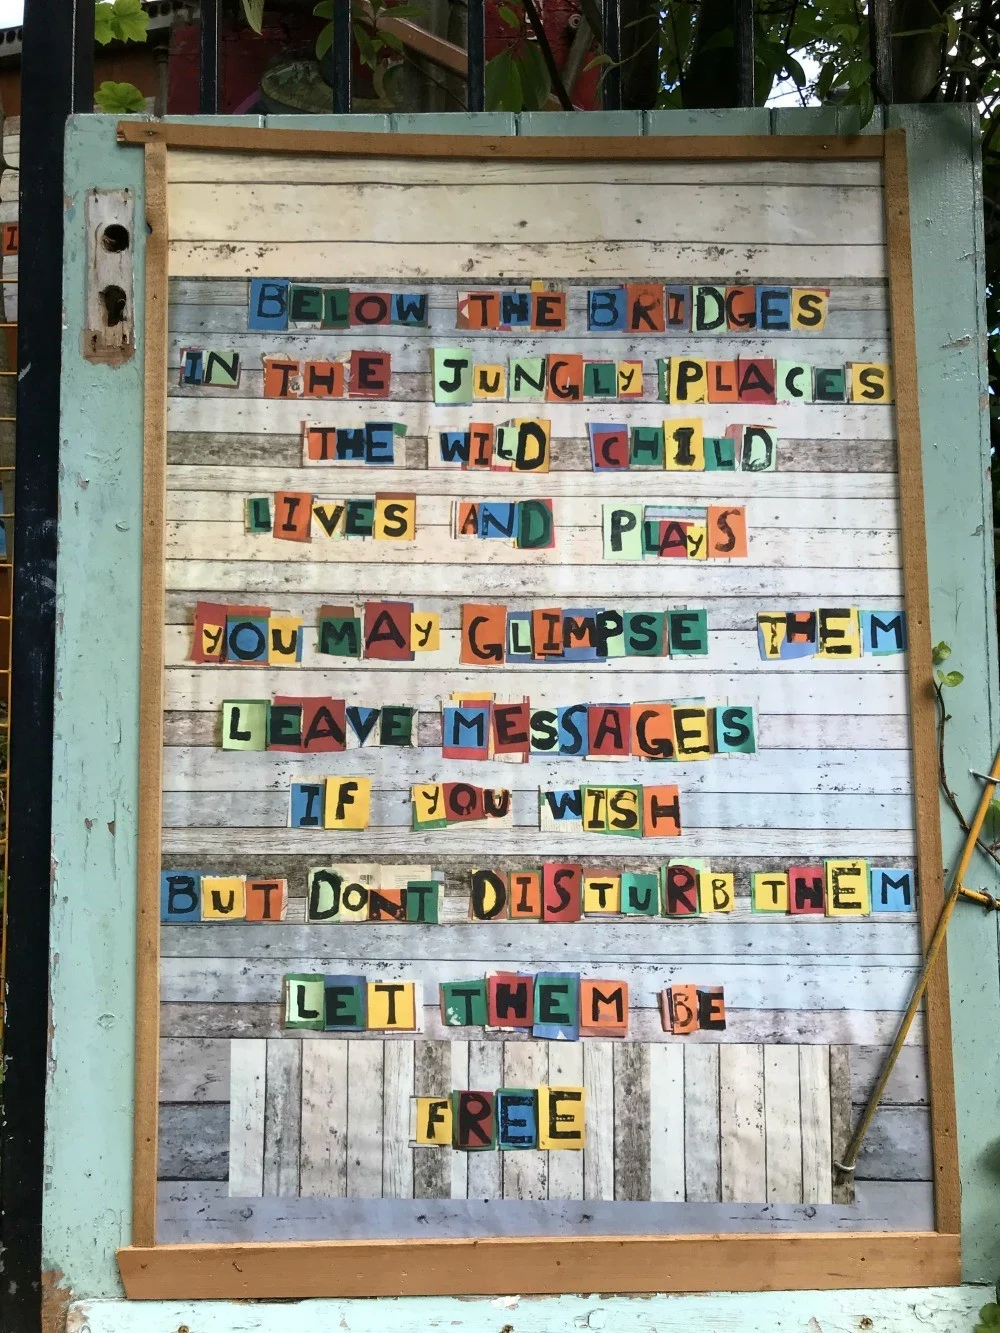 BELOW THE BRIDGES
IN THE JUNGLY PLACES
THE WILD CHILD
LIVES AND PLAYS
YOU MAY GLIMPSE THEM
LEAVE MESSAGES
IF YOU WISH
BUT DONT DISTURB THEM
LET THEM BE
FREE